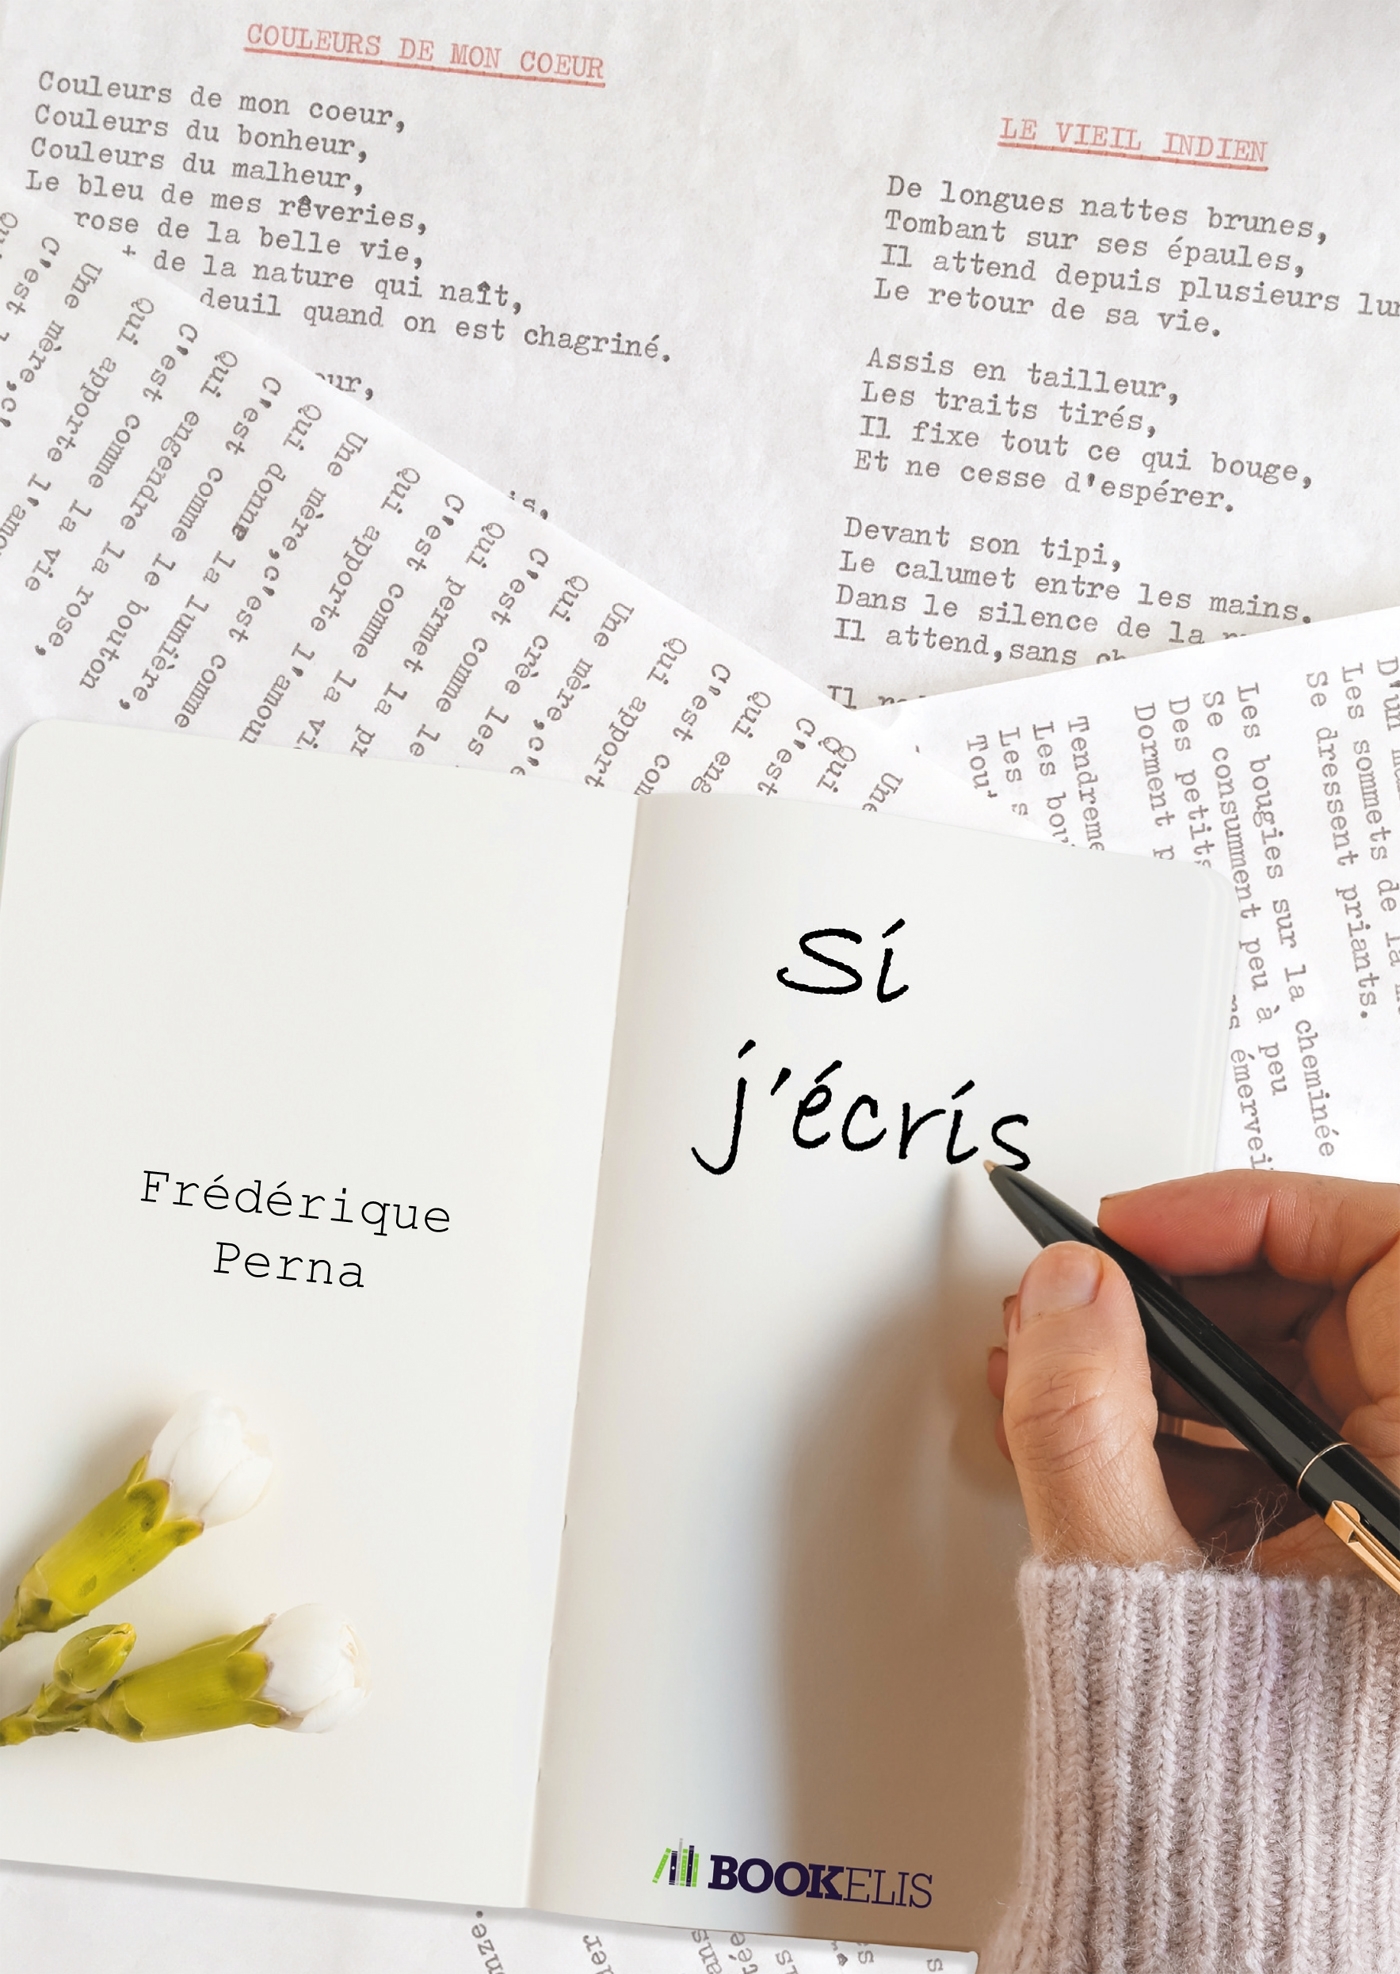 COULEURS DE MON COEUR
Couleurs de mon coeur,
Couleurs du bonheur,
Couleurs du malheur,
Le bleu de mes rêveries,
rose de la belle vie,
de la nature qui naît,
deuil quand on est chagriné.
LE VIEIL INDIEN
De longues nattes brunes,
Tombant sur ses épaules,
Il attend depuis plusieurs
Le retour de sa vie.
Assis en tailleur,
Les traits tirés,
Il fixe tout ce qui bouge,
Et ne cesse d'espérer.
Devant son tipi,
Le calumet entre les mains.
Dans le silence de la
Il attend,sans
Il
Une mère,c'est comme
Qui apporte l'amour
C'est comme la vie
Qui engendre la rose,
C'est comme le bouton
Qui donne la lumière,
Une mère,c'est comme
Qui apporte l'amour
C'est comme la
Qui permet la
C'est comme le
Qui crée les
Une mère,
Qui
C'est
Qui
C'est
Qui
Une
Les sommets de la
Se dressent priants.
Les bougies sur la cheminée
Se consumment peu à peu
Des petits
Dorment
Les
Les
Si
j'écris
Frédérique
Perna
BOOKELIS